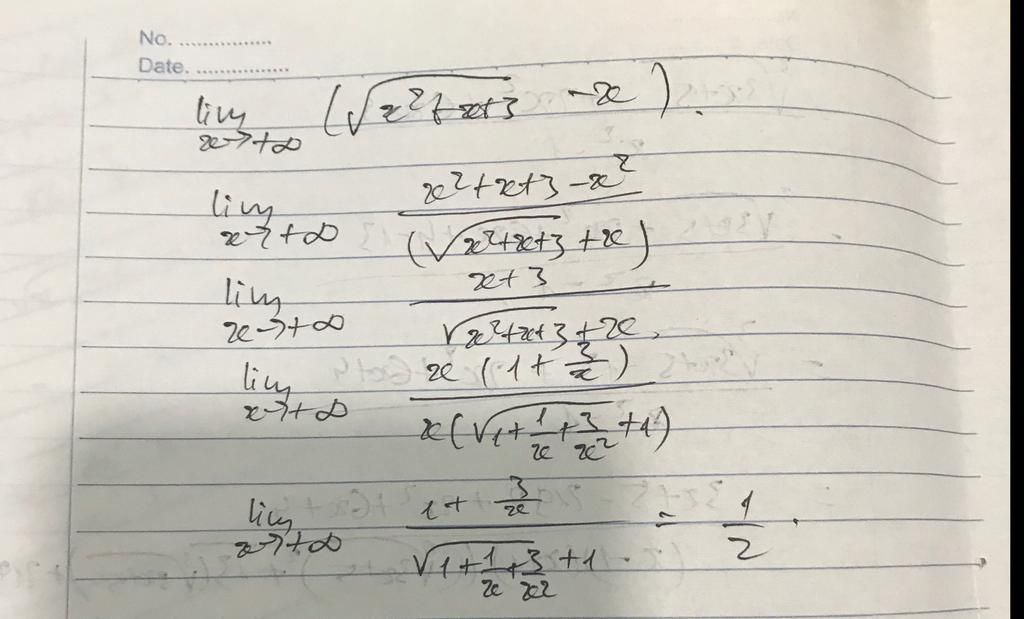 No. ................
Date. ................
lim x→+∞ (√(x²+x+3) - x).
lim x→+∞ (x²+x+3-x²)/(√(x²+x+3) + x)
lim x→+∞ (x+3)/(√(x²+x+3) + x).
lim x→+∞ x(1+3/x)/x(√(1+1/x+3/x²) + 1)
lim x→+∞ (1+3/x)/(√(1+1/x+3/x²) + 1) = 1/2.